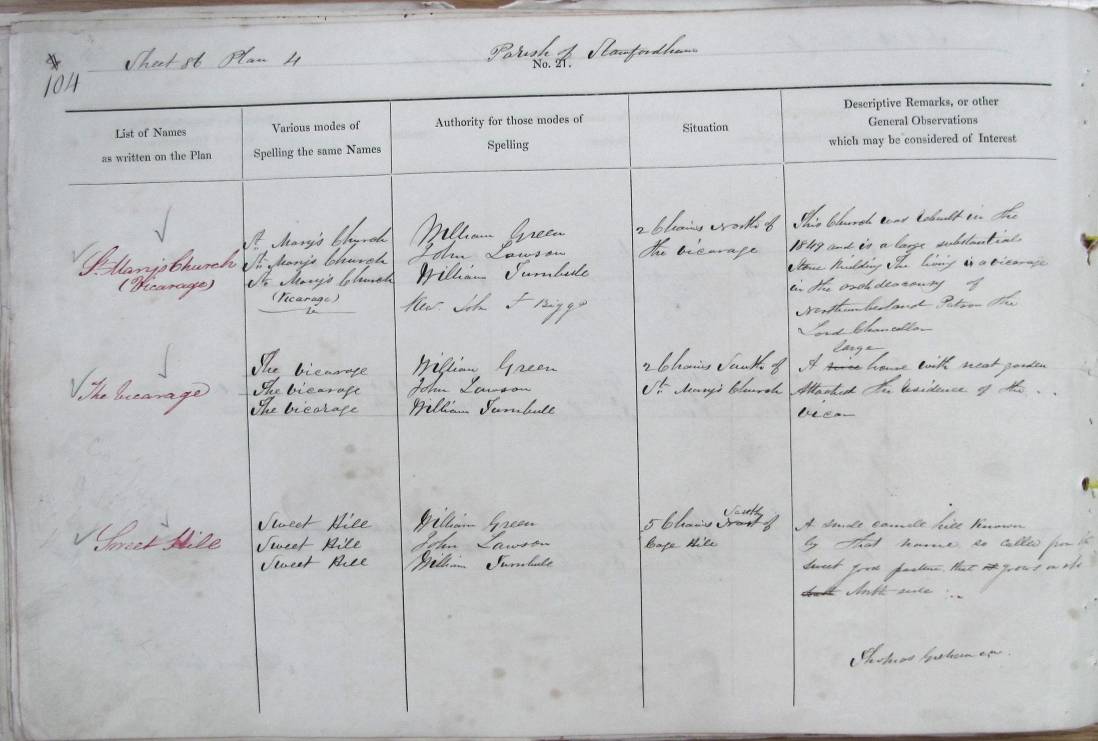 104
Sheet 86 Plan 4
Parish of Stamfordham
No. 21.
List of Names
as written on the Plan
Various modes of
Spelling the same Names
Authority for those modes of
Spelling
Situation
Descriptive Remarks, or other
General Observations
which may be considered of Interest
St. Mary's Church
(Vicarage)
St. Mary's Church
St. Mary's Church
St. Mary's Church
(Vicarage)
William Green
John Lawson
William Turnbull
Rev. John F Bigge
2 Chains North of
the vicarage
This Church was rebuilt in the
1848 and is a large substantial
Stone Building The living is a vicarage
in the archdeaconry of
Northumberland Patron the
Lord Chancellor
The vicarage
The vicarage
The vicarage
The vicarage
William Green
John Lawson
William Turnbull
2 Chains South of
St. Mary's Church
large
A nice house with neat garden
Attached the residence of the
vicar
Sweet Hill
Sweet Hill
Sweet Hill
Sweet Hill
William Green
John Lawson
William Turnbull
South
5 Chains of
Cage Hill
A small hill Known
by that name so called from the
sweet good pasture that it grows on its
South North side
Thomas